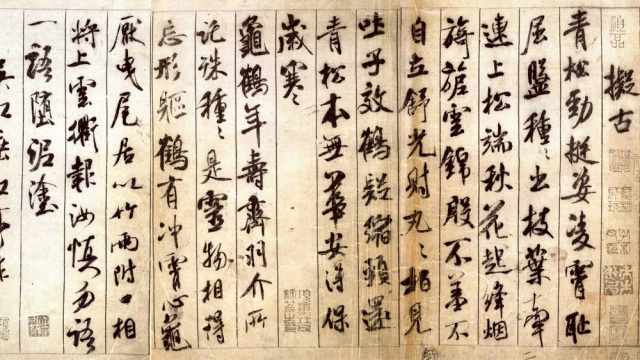 擬古
青松勁挺姿凌霄恥
屈盤種〻出枝葉牽
連上松端秋花起絳烟
旖旎雲錦殷不羞不
自立舒光射丸〻柏見
吐子效鶴疑縮頸還
青松本無華安得保
歲寒〻
龜鶴年壽齊羽介所
託殊種〻是靈物相得
忘形軀鶴有冲霄心龜
厭曳尾居以竹兩附口相
將上雲衢報汝慎勿語
一語墮泥塗
吳江垂虹亭作